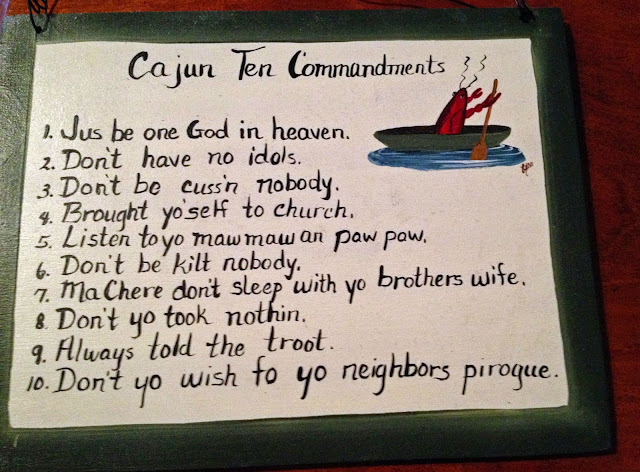 Cajun Ten Commandments
1. Jus be one God in heaven.
2. Don't have no idols.
3. Don't be cuss'n nobody.
4. Brought yo'self to church.
5. Listen to yo mawmaw an paw paw.
6. Don't be kilt nobody.
7. MaChere don't sleep with yo brothers wife.
8. Don't yo took nothin.
9. Always told the troot.
10. Don't yo wish fo yo neighbors pirogue.